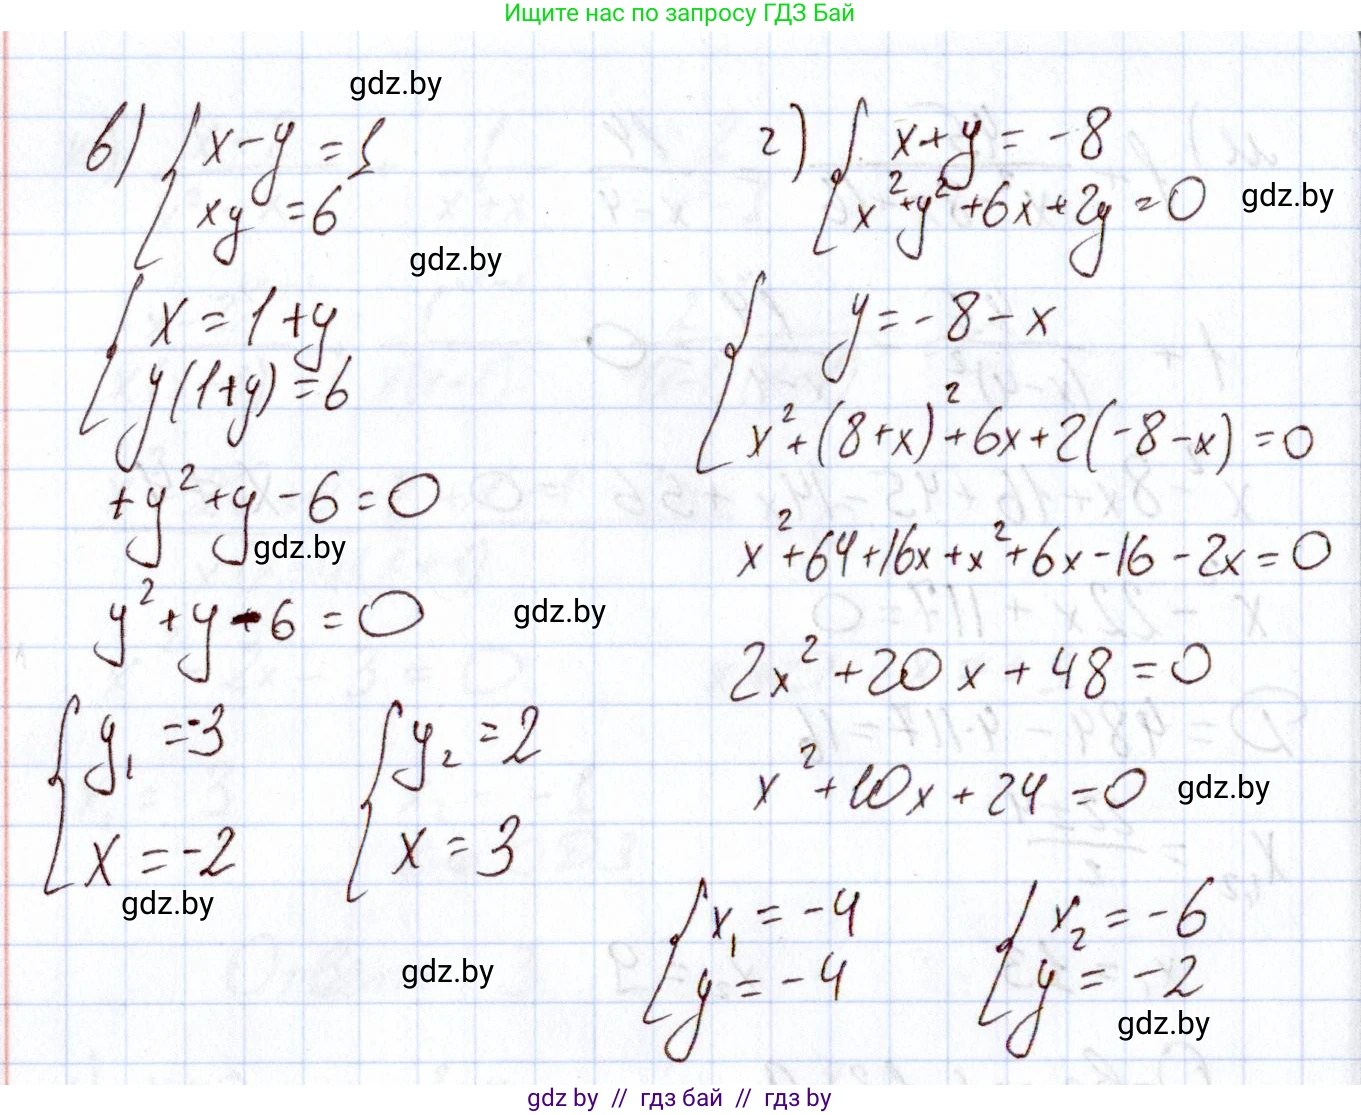 Ищите нас по запросу ГДЗ Бай
gdz.by
в) { x - y = 1
xy = 6
gdz.by
{ x = 1 + y
y(1+y) = 6
+y² + y - 6 = 0
gdz.by
y² + y - 6 = 0
gdz.by
{ y₁ = -3
x = -2
{ y₂ = 2
x = 3
gdz.by
gdz.by
г) { x + y = -8
x² + y² + 6x + 2y = 0
gdz.by
{ y = -8 - x
x² + (8 + x)² + 6x + 2(-8 - x) = 0
x² + 64 + 16x + x² + 6x - 16 - 2x = 0
2x² + 20x + 48 = 0
x² + 10x + 24 = 0
gdz.by
{ x₁ = -4
y = -4
{ x₂ = -6
y = -2
gdz.by
gdz by // гдз бай // гдз by